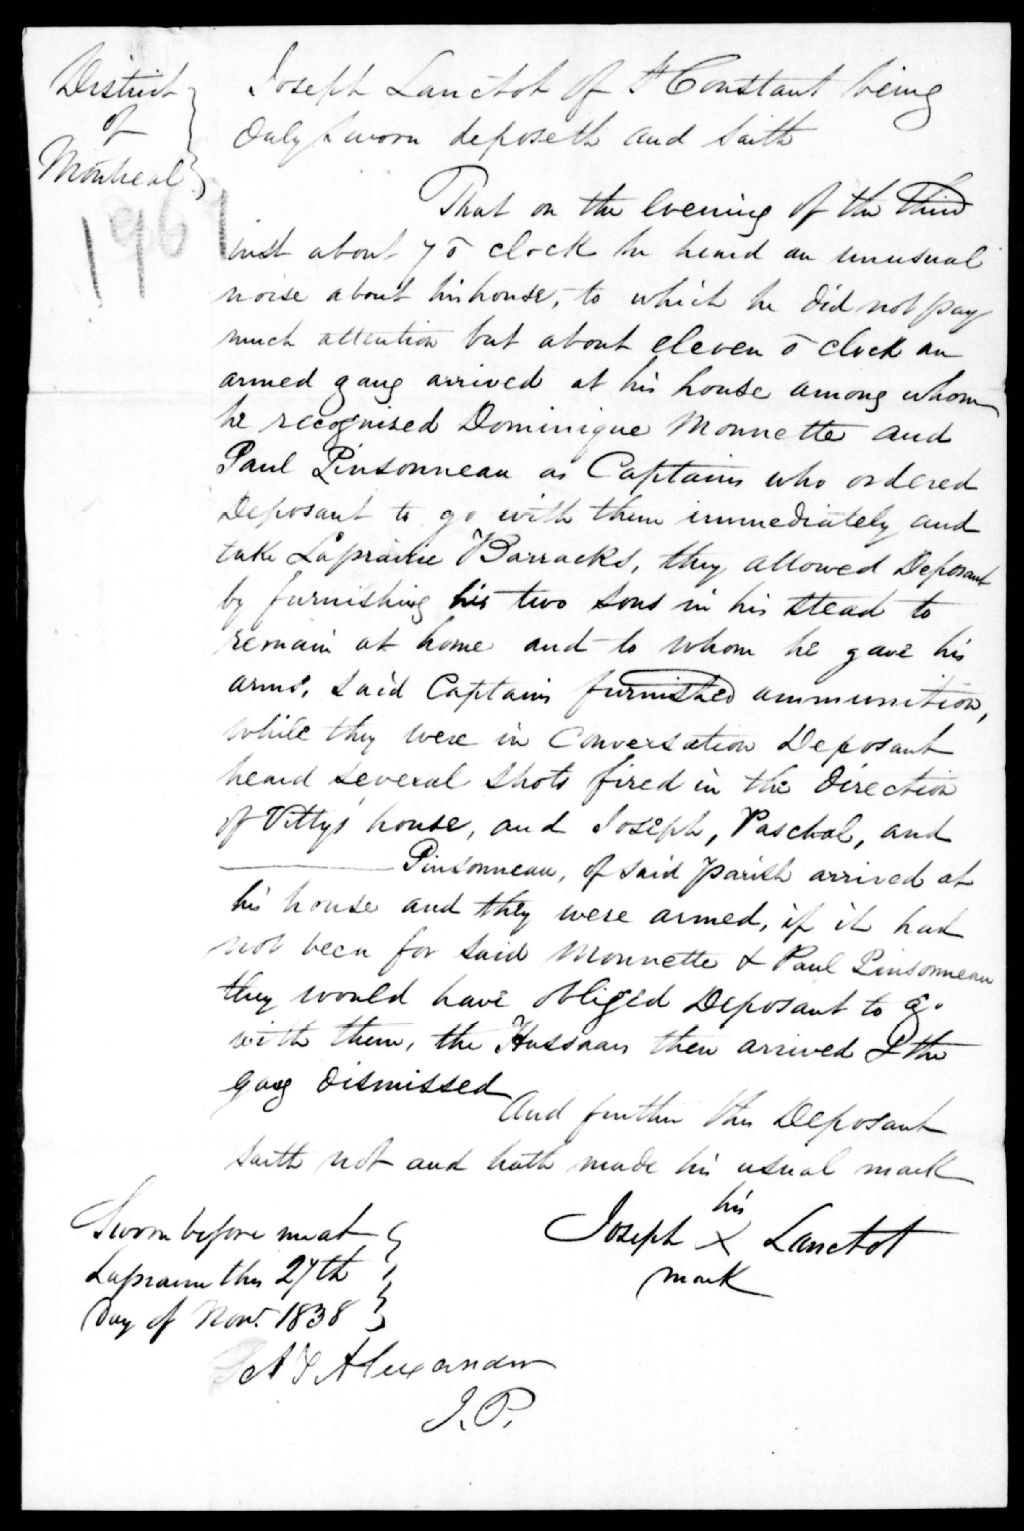 District
of
Montreal
1961
Joseph Lanctot of St Constant being
duly sworn deposeth and saith
That on the Evening of the Third
inst about 7 o clock he heard an unusual
noise about his house, to which he did not pay
much attention but about eleven o clock an
armed gang arrived at his house among whom
he recognised Dominique Monnette and
Paul Pinsonneau as Captains who ordered
Deposant to go with them immediately and
take Laprairie Barracks, they allowed Deposant
by furnishing his two sons in his stead to
remain at home and to whom he gave his
arms, said Captains furnished ammunition,
while they were in Conversation Deposant
heard several shots fired in the direction
of Vitty's house, and Joseph, Paschal, and
———— Pinsonneau, of said parish arrived at
his house and they were armed, if it had
not been for said Monnette & Paul Pinsonneau
they would have obliged Deposant to go
with them, the Hussars then arrived & the
gang dismissed
And further this Deposant
saith not and hath made his usual mark
his
Joseph X Lanctot
mark
Sworn before me at
Laprairie this 27th
day of Nov. 1838
Alexander
J. P.